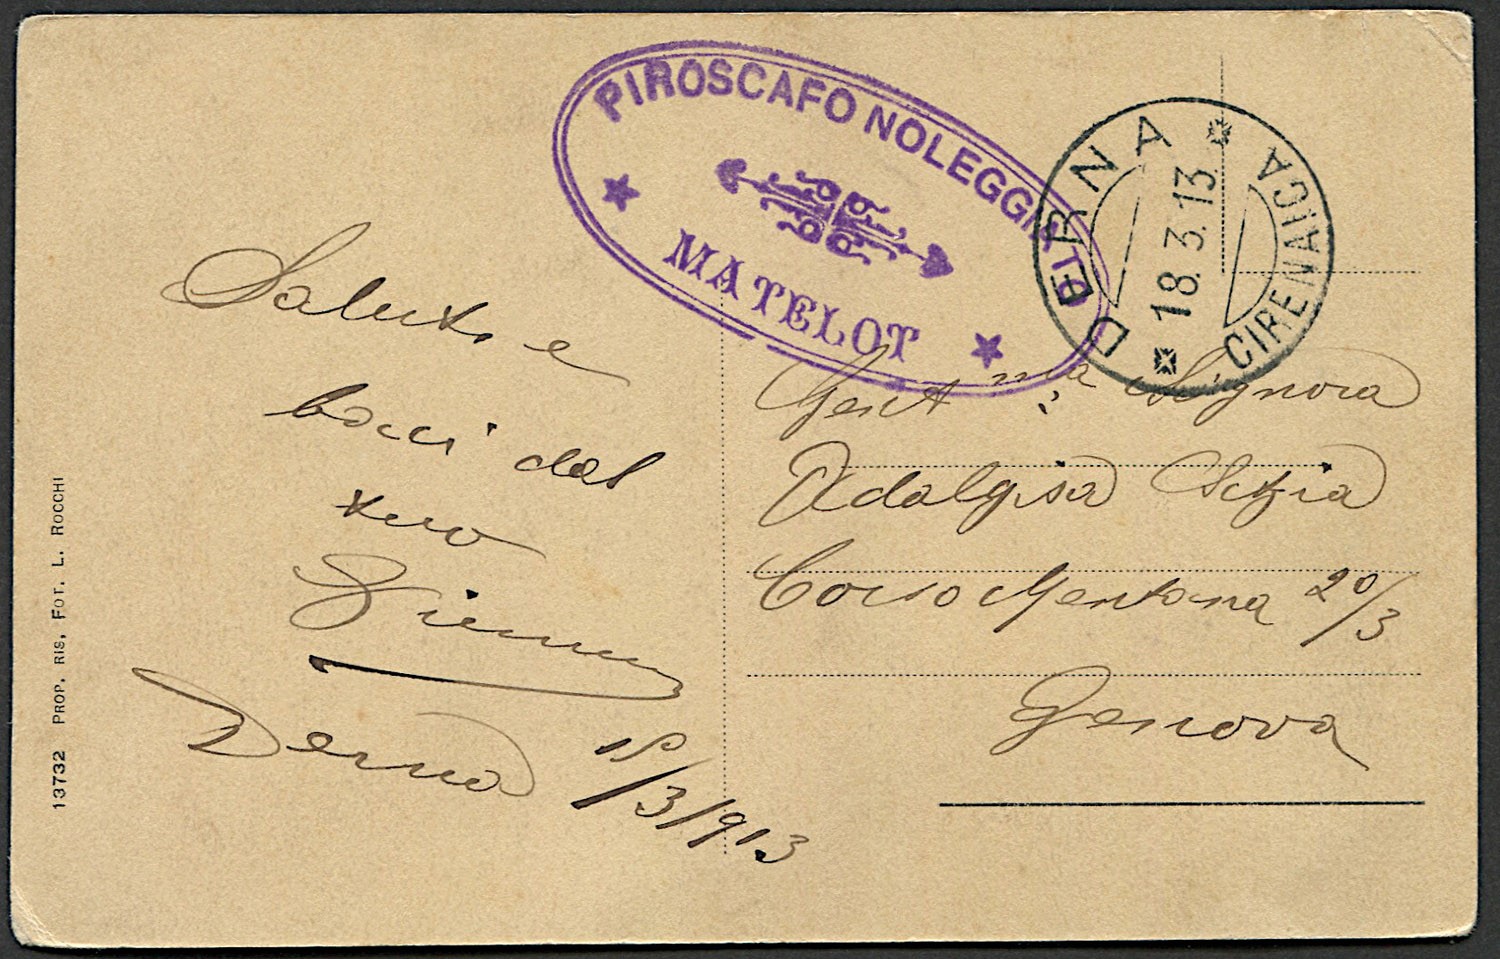 PIROSCAFO NOLEGGIATO
MATELOT
DERNA
18.3.13.
CIRENAICA
Saluti e
baci dal
tuo
Derna 18/3/1913
Gent ma Signora
Adalgisa
Corso Mentana 20/3
Genova
13732 PROP. RIS. FOT. L. ROCCHI